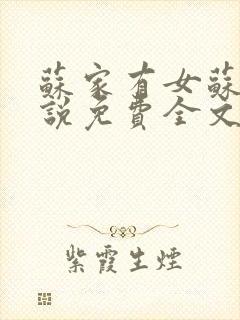 蘇家有女蘇
說免費全文
紫霞生煙